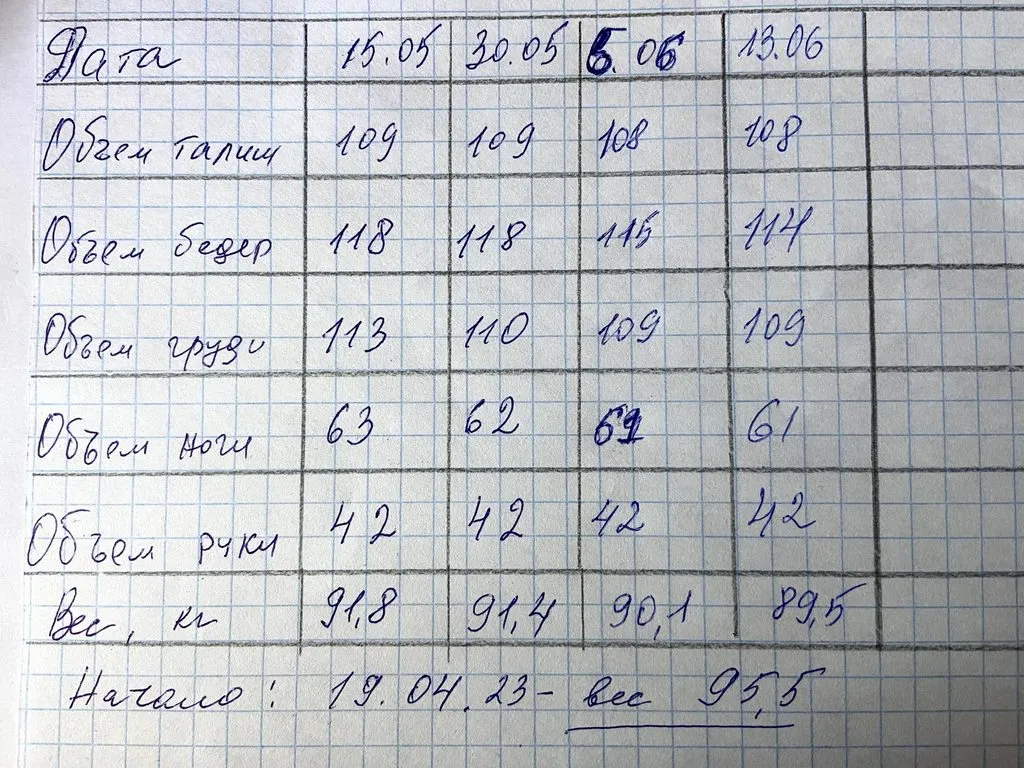 Дата 15.05 30.05 6.06 13.06
Объем талии 109 109 108 108
Объем бедер 118 118 115 114
Объем груди 113 110 109 109
Объем ноги 63 62 61 61
Объем руки 42 42 42 42
Вес, кг 91,8 91,4 90,1 89,5
Начало: 19.04.23 - вес 95,5